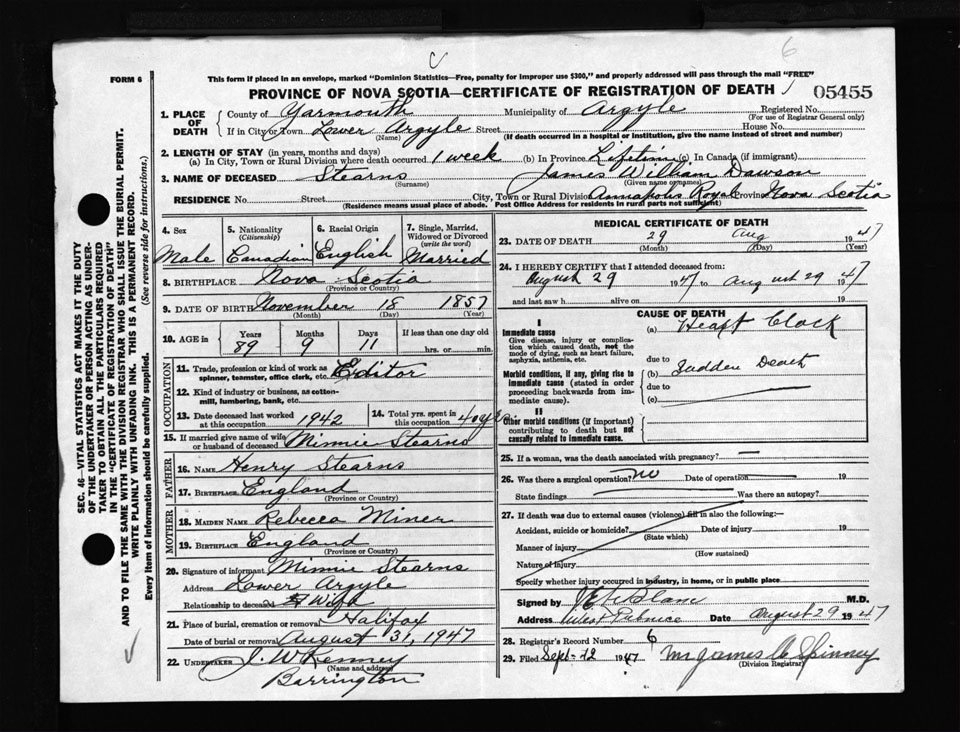 6
FORM 6
This form if placed in an envelope, marked "Dominion Statistics—Free, penalty for improper use $300," and properly addressed will pass through the mail "FREE"
PROVINCE OF NOVA SCOTIA—CERTIFICATE OF REGISTRATION OF DEATH
05455
1. PLACE OF DEATH
County of Yarmouth Municipality of Argyle Registered No.
(For use of Registrar General only)
If in City or Town Lower Argyle Street House No.
(Name) (If death occurred in a hospital or institution, give the name instead of street and number)
2. LENGTH OF STAY (in years, months and days)
(a) In City, Town or Rural Division where death occurred 1 week (b) In Province Lifetime (c) In Canada (if immigrant)
3. NAME OF DECEASED Stearns James William Dawson
(Surname) (Given name or names)
RESIDENCE No. Street City, Town or Rural Division Annapolis Royal Province Nova Scotia
(Residence means usual place of abode. Post Office Address for residents in rural parts not sufficient)
4. Sex Male
5. Nationality (Citizenship) Canadian
6. Racial Origin English
7. Single, Married, Widowed or Divorced (write the word) Married
8. BIRTHPLACE Nova Scotia
(Province or Country)
9. DATE OF BIRTH November 18 1857
(Month) (Day) (Year)
10. AGE in Years Months Days If less than one day old
89 9 11 hrs. or min.
OCCUPATION
11. Trade, profession or kind of work as spinner, teamster, office clerk, etc. Editor
12. Kind of industry or business, as cotton-mill, lumbering, bank, etc.
13. Date deceased last worked at this occupation 1942
14. Total yrs. spent in this occupation 40 yrs
15. If married give name of wife or husband of deceased Minnie Stearns
FATHER
16. NAME Henry Stearns
17. BIRTHPLACE England
(Province or Country)
MOTHER
18. MAIDEN NAME Rebecca Miner
19. BIRTHPLACE England
(Province or Country)
20. Signature of informant Minnie Stearns
Address Lower Argyle
Relationship to deceased Wife
21. Place of burial, cremation or removal Halifax
Date of burial or removal August 31, 1947
22. UNDERTAKER J. W Kenney
(Name and address)
Barrington
MEDICAL CERTIFICATE OF DEATH
23. DATE OF DEATH 29 Aug 1947
(Month) (Day) (Year)
24. I HEREBY CERTIFY that I attended deceased from:
August 29 1947 to August 29 1947
and last saw h alive on 19
CAUSE OF DEATH
I
Immediate cause
Give disease, injury or complication which caused death, not the mode of dying, such as heart failure, asphyxia, asthenia, etc.
(a) Heart Block
due to
Morbid conditions, if any, giving rise to immediate cause (stated in order proceeding backwards from immediate cause).
(b) Sudden Death
due to
(c)
II
Other morbid conditions (if important) contributing to death but not causally related to immediate cause.
25. If a woman, was the death associated with pregnancy? —
26. Was there a surgical operation? no Date of operation 19
State findings Was there an autopsy?
27. If death was due to external causes (violence) fill in also the following:—
Accident, suicide or homicide? Date of injury 19
(State which)
Manner of injury
(How sustained)
Nature of injury
Specify whether injury occurred in industry, in home, or in public place
Signed by M.D.
Address West Pubnico Date August 29 1947
28. Registrar's Record Number 6
29. Filed Sept. 12 1947 Mrs James A Spinney
(Division Registrar)
SEC. 46—VITAL STATISTICS ACT MAKES IT THE DUTY
OF THE UNDERTAKER OR PERSON ACTING AS UNDERTAKER TO OBTAIN ALL THE PARTICULARS REQUIRED
IN THE "CERTIFICATE OF REGISTRATION OF DEATH"
AND TO FILE THE SAME WITH THE DIVISION REGISTRAR WHO SHALL ISSUE THE BURIAL PERMIT.
WRITE PLAINLY WITH UNFADING INK. THIS IS A PERMANENT RECORD.
Every item of information should be carefully supplied. (See reverse side for instructions.)